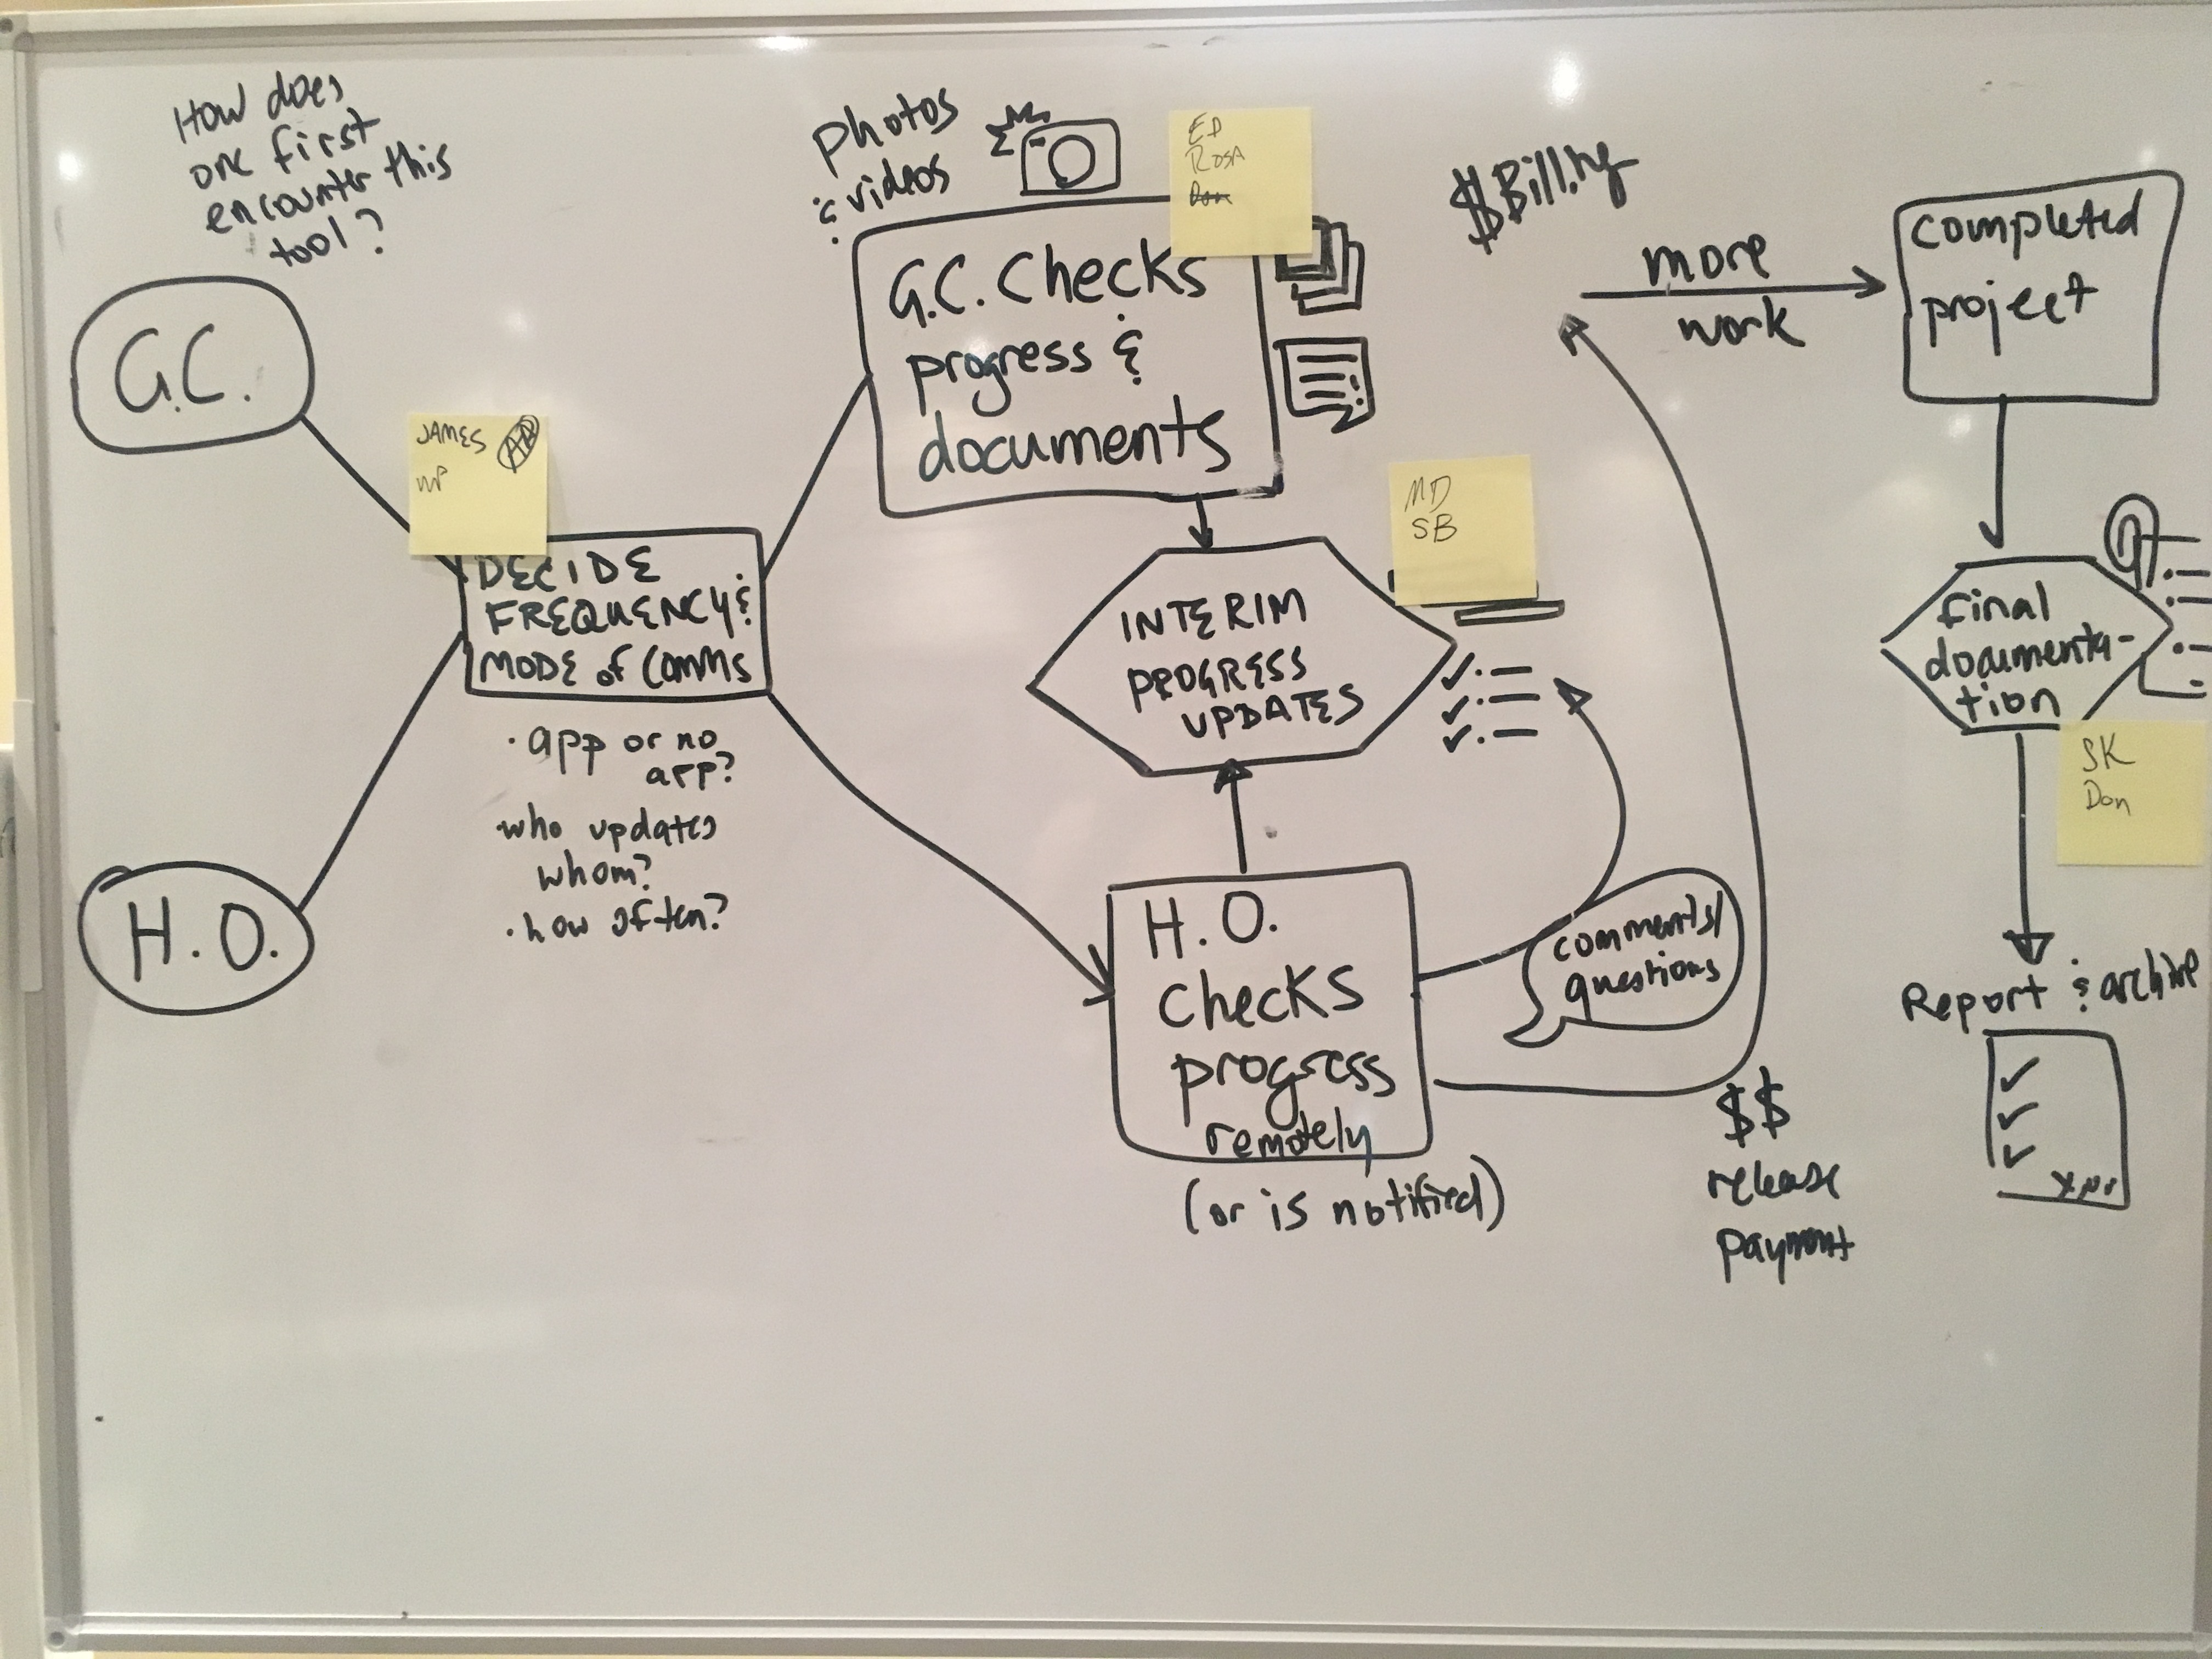 How does
one first
encounter this
tool?
G.C.
H.O.
JAMES
DECIDE
FREQUENCY &
MODE of COMMS
· app or no
app?
· who updates
whom?
· how often?
Photos
& videos
ED
ROSA
Don
G.C. Checks
progress &
documents
MD
SB
INTERIM
PROGRESS
UPDATES
H.O.
Checks
progress
remotely
(or is notified)
comments/
questions
$$
release
payment
$Billing
more
work
completed
project
final
documenta-
tion
SK
Don
Report & archive